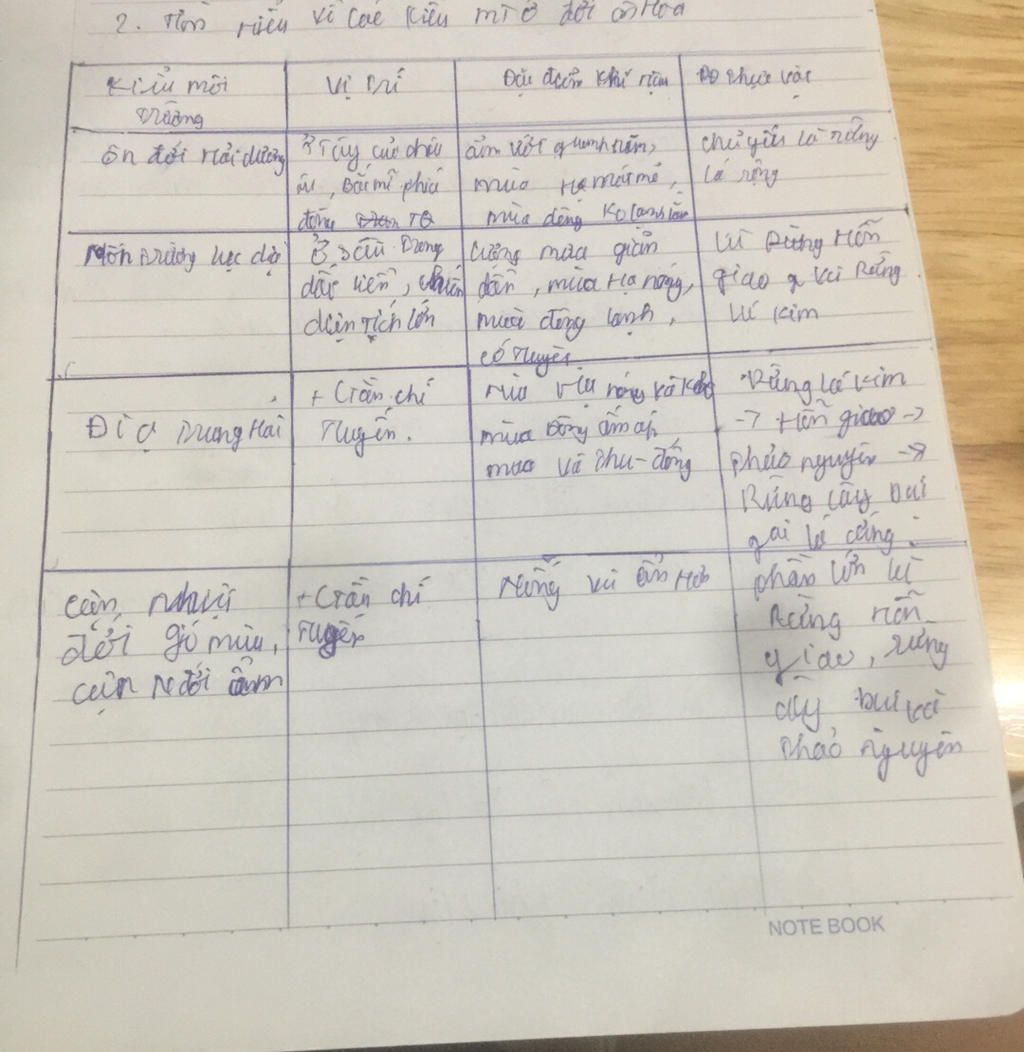 2. Tìm hiểu về các kiểu mt ở đới ôn hoà
Kiểu môi trường
Vị trí
Đặc điểm khí hậu
thực vật
ôn đới Hải dương
ở Tây của châu
âu, Bắc mĩ phía
đông TQ
ẩm ướt quanh năm,
mùa Hạ mát mẻ,
mùa đông ko lạnh lắm
chủ yếu là rừng
lá rộng
Môi trường lục địa
Ở sâu trong
đất liền, chiếm
diện tích lớn
Lượng mưa giảm
dần, mùa Hạ nóng,
mùa đông lạnh,
có tuyết
là Rừng Hỗn
giao và Rừng
lá kim
Địa Trung Hải
+ Gần chí
tuyến.
nóng và khô
mùa đông ấm áp
mưa và thu-đông
Rừng lá kim
-> Hỗn giao ->
thảo nguyên ->
Rừng cây bụi
gai lá cứng.
cận nhiệt
đới gió mùa,
cận N đới ẩm
+ Gần chí
tuyến
Nóng và ẩm Hơn
phần lớn là
Rừng Hỗn
giao, rừng
cây bụi và
thảo nguyên
NOTE BOOK